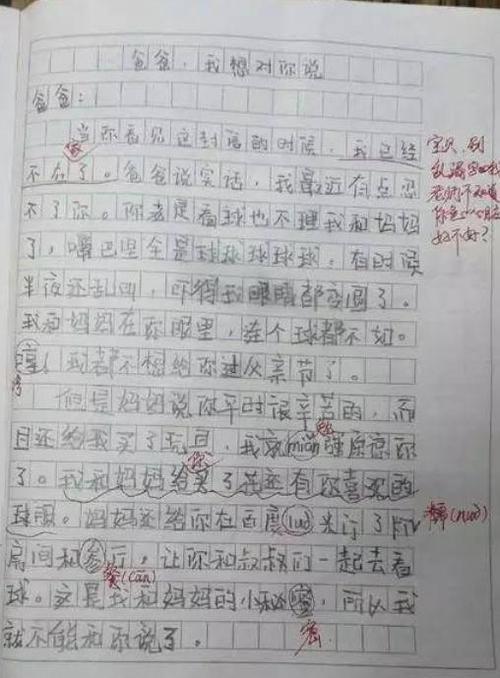 爸爸，我想对你说
爸爸：
当你看见这封信的时候，我已经
家
不在了。爸爸说实话，我最近有点忍
不了你。你老是看球也不理我和妈妈
了，嘴巴里全是球球球球球。有时候
半夜还乱叫，吓得我眼睛都变圆了。
我和妈妈在你眼里，连个球都不如。
哼！我都不想给你过父亲节了。
但是妈妈说你平时很辛苦的，而
且还给我买了玩具，我就mian强原谅你
了。我和妈妈给买了花还有你喜欢的
你
球服。妈妈还给你在百度nuo米订了
房间和参厅，让你和叔叔们一起去看
餐(cān)
球。这是我和妈妈的小秘蜜，所以我
密
就不能和你说了。
宝贝，别
乱漏字
老师不知道
好不好？
糯(nuò)